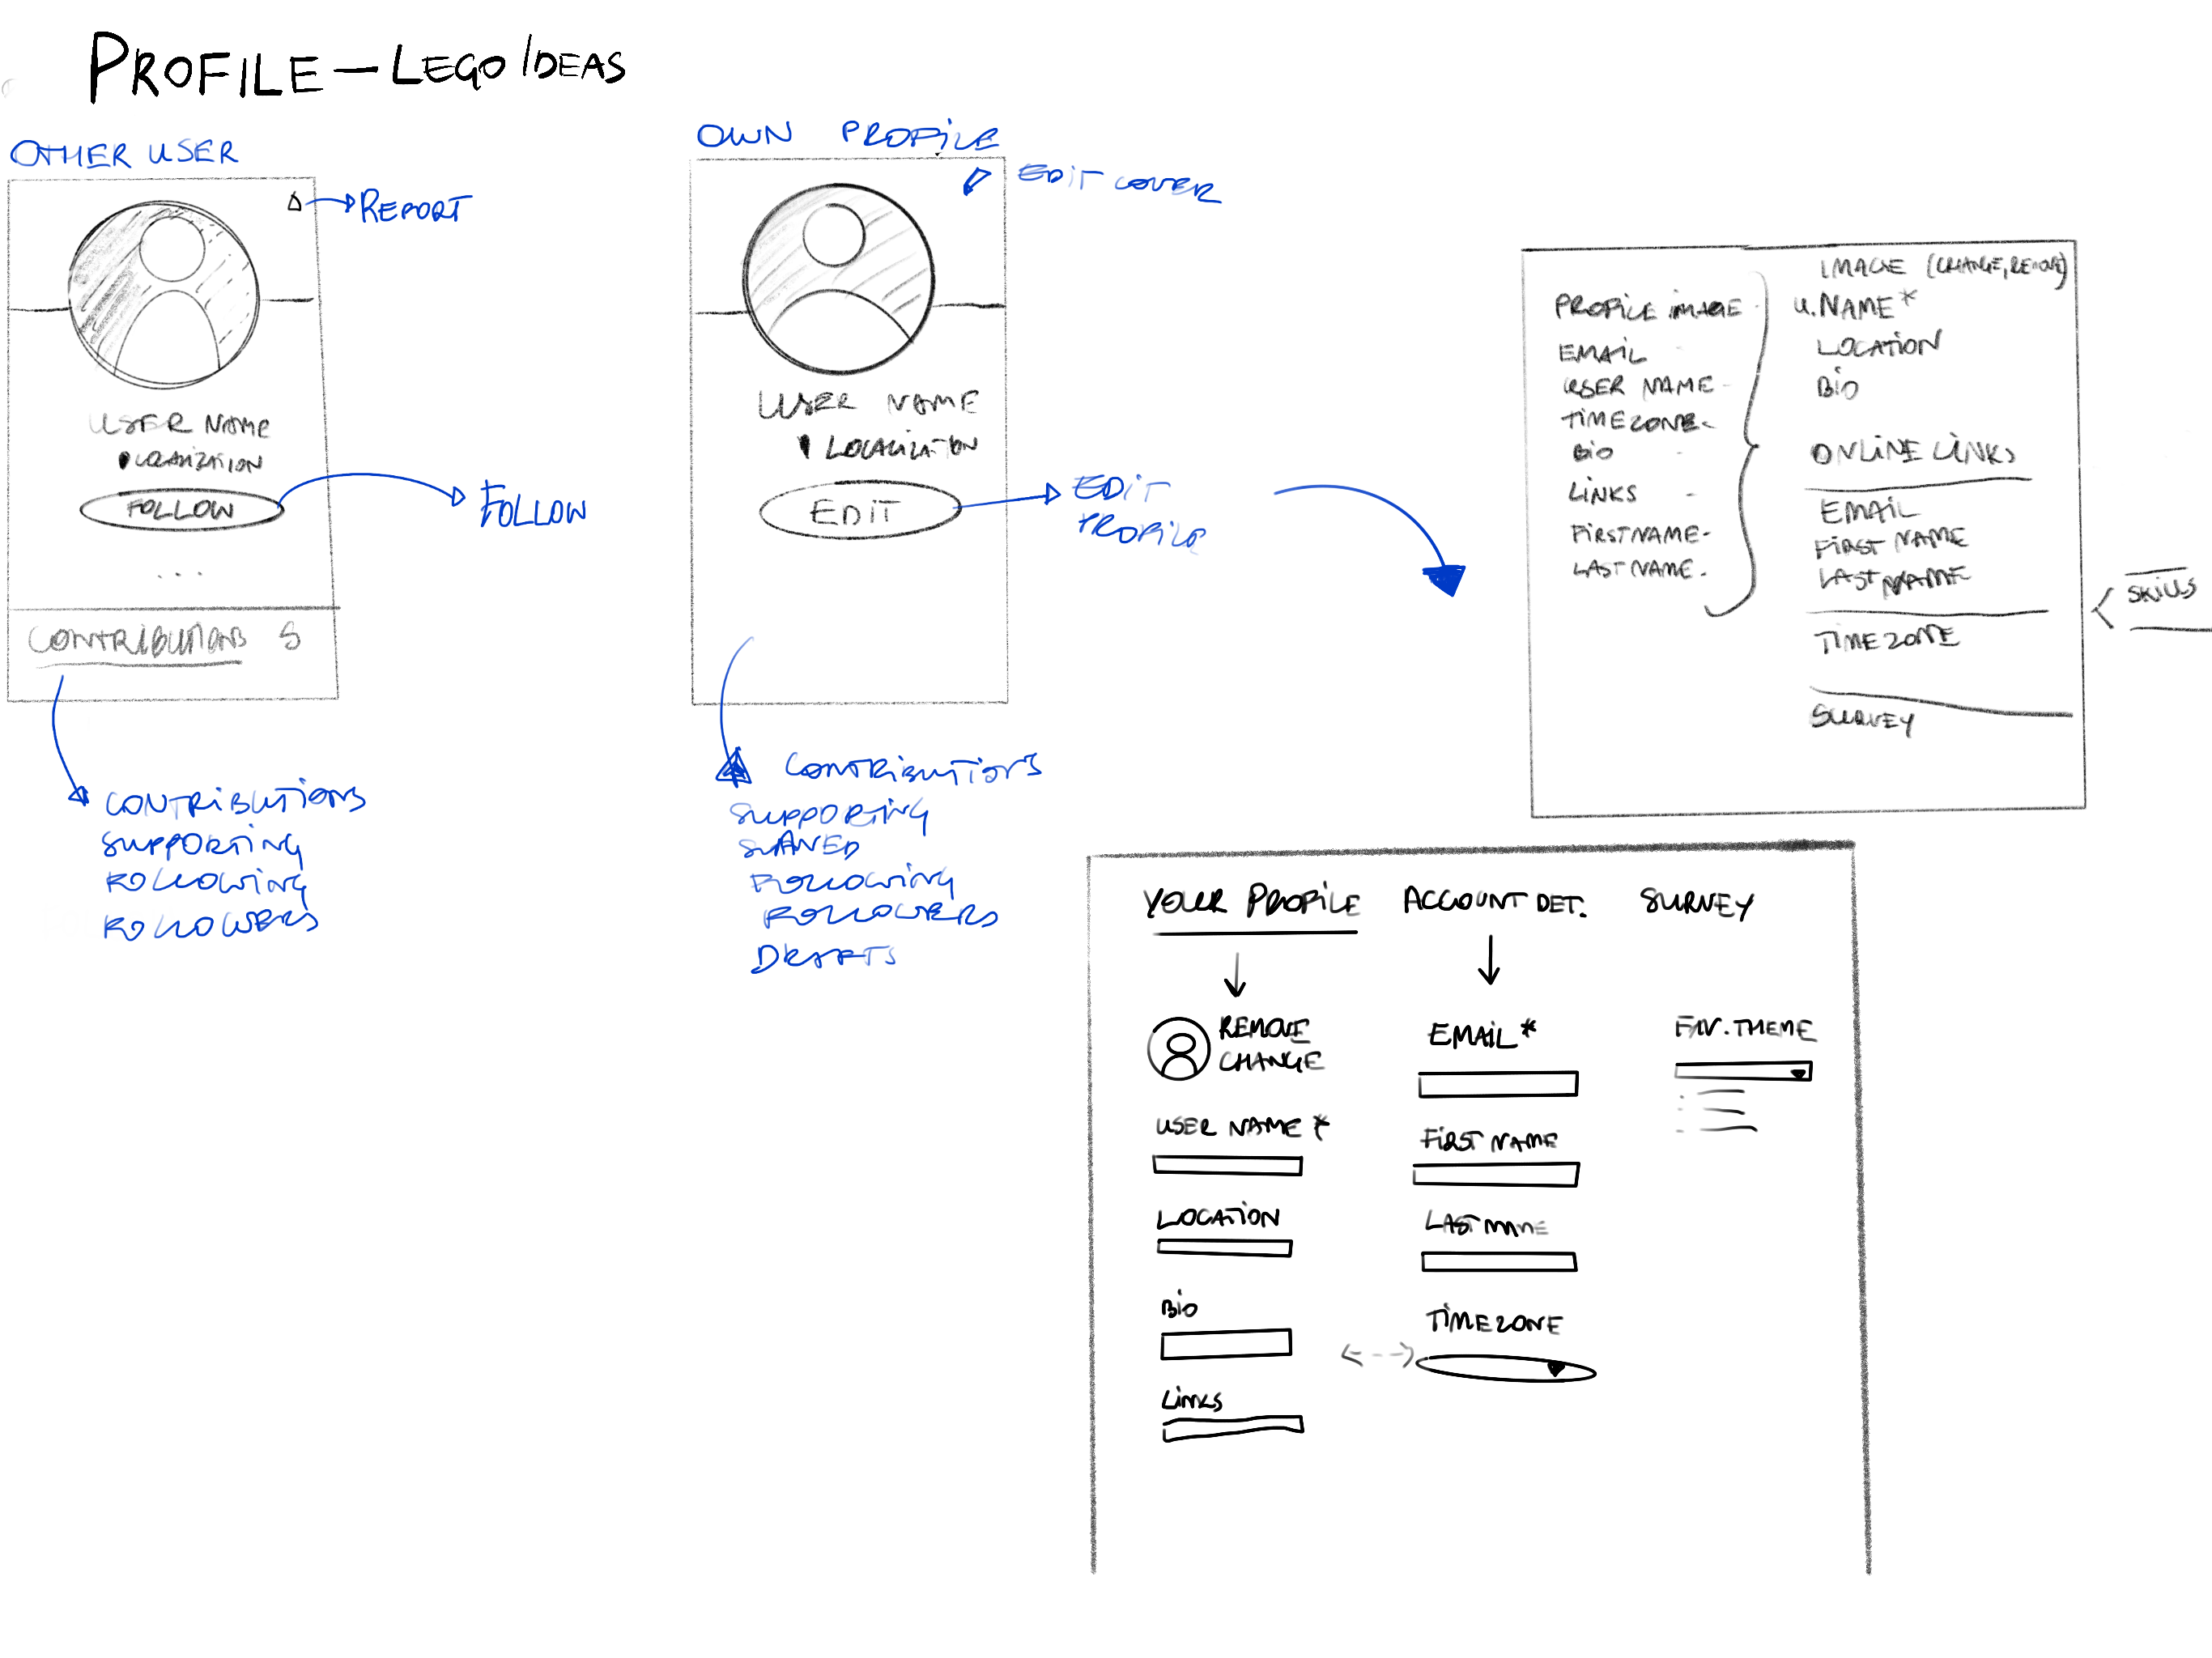 PROFILE — LEGO IDEAS
OTHER USER
REPORT
USER NAME
LOCALIZATION
FOLLOW
FOLLOW
...
CONTRIBUTIONS S
CONTRIBUTIONS
SUPPORTING
FOLLOWING
FOLLOWERS
OWN PROFILE
EDIT COVER
USER NAME
LOCALIZATION
EDIT
EDIT
PROFILE
CONTRIBUTIONS
SUPPORTING
SAVED
FOLLOWING
FOLLOWERS
DRAFTS
PROFILE IMAGE
EMAIL
USER NAME
TIMEZONE
BIO
LINKS
FIRST NAME
LAST NAME
IMAGE (CHANGE, REMOVE)
U. NAME *
LOCATION
BIO
ONLINE LINKS
EMAIL
FIRST NAME
LAST NAME
TIMEZONE
SURVEY
SKILLS
YOUR PROFILE
REMOVE
CHANGE
USER NAME *
LOCATION
BIO
LINKS
ACCOUNT DET.
EMAIL *
FIRST NAME
LAST NAME
TIMEZONE
SURVEY
FAV. THEME